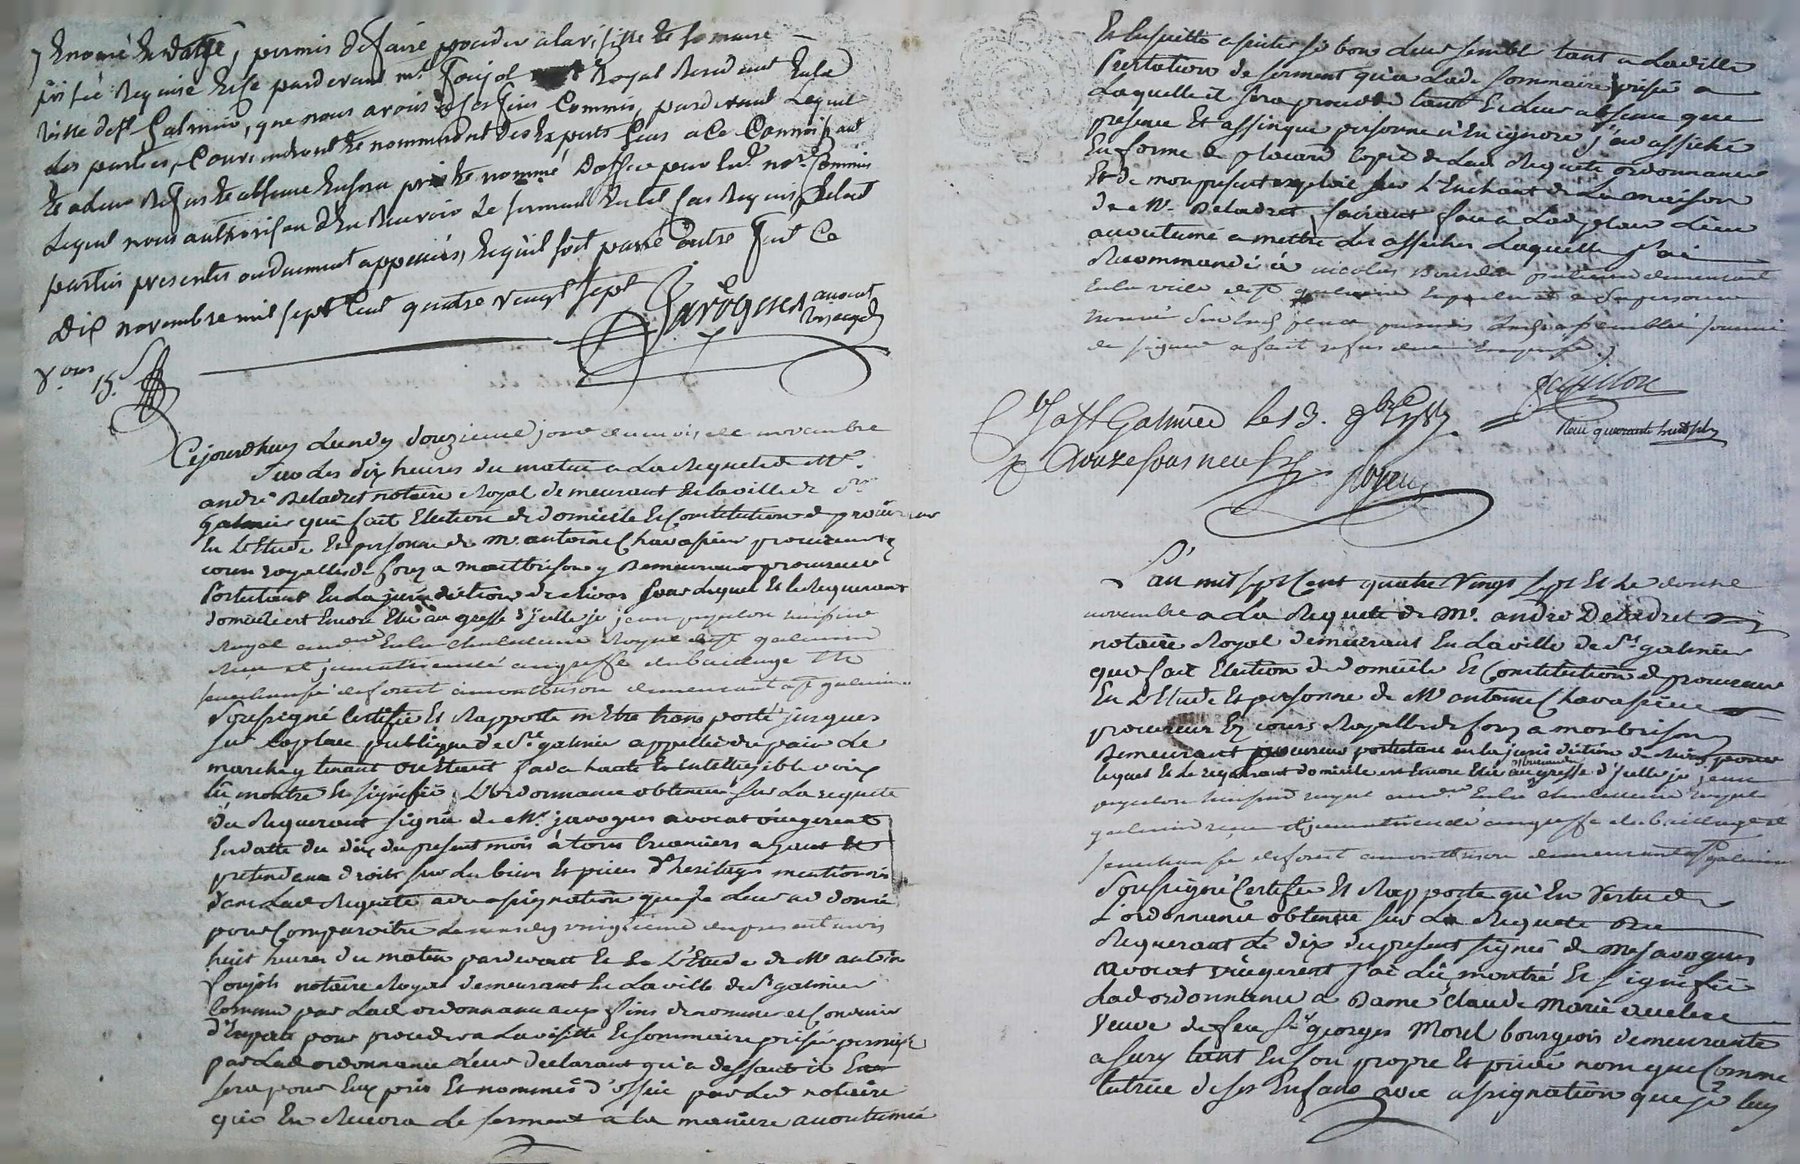 y Enoncé En datte, permis de faire proceder a la visitte et sommaire
prisée Requise Et ce pardevant mr. foujol Royal Resident En la
Ville de st galmier, que nous avons a ces fins Commis, pardevant Lequel
Les parties, Conviendront et nommeront des Experts Gens a ce Connoissant
Et a leur Refus et absence En sera pris Et nommé d'office par led. nore. Commis
Lequel nous authorison d'En Recevoir Le serment En tel Cas Requis
parties presentes ou duement appellées, Et qu'il soit passé outre fait Ce
Dix novembre mil sept Cent quatre vingt sept
Javogues avocat
15s
Cejourdhuy Lundy douzieme jour du mois de novembre
Sur Les dix heures du matin a La Requete de Mr.
andré Deladret notaire Royal demeurant En la ville de St
galmier qui fait Election de domicile Et Constitution de procureur
En L'Etude Et personne de me antoine Chavassieu procureur Ez
cours royalles de forez a montbrison y Demeurant procureur
Postulant En La jurisdiction de Rivas pour Lequel Et Le Requerant
domicile est Encore Elu au greffe d'jcelle je jean huissier
Royal En la chatellenie Royale de st galmier
Reçu et jmmatriculé au greffe du bailliage Et
senechaussée de forest a montbrison demeurant a st galmier
Soussigné Certifie Et Rapporte m'Etre transporté jusques
sur La place publique de st galmier appellée du
marché y tenant ou Etant j'ai a haute Et Intelligible voix
lu montré Et signifié L'ordonnance obtenue sur La requete
du Requerant signée de Mr. javogues avocat vicegerent
En datte du dix du present mois à tous treanciers ayant Et
pretendant droits sur Les biens Et pieces d'heritages mentionnés
dans Lade Requete avec assignation que je Leur ai donné
pour Comparoitre Le vingtieme du present mois
huit heures du matin pardevant Et En L'Etude de Me
foujols notaire Royal demeurant En La ville de St galmier
Commis par Lad ordonnance aux fins de nommer et Convenir
d'Experts pour proceder a La visitte Et sommaire prisée permise
par Lad ordonnance Leur declarant qu'a deffaut il En
sera pour Eux pris Et nommés d'office par Led notaire
qui En Recevra Le serment a la maniere accoutumée
Et Ensuitte assister si bon Leur semble tant a Laditte
Prestation de serment qu'a Lade Sommaire prisée a
Laquelle il sera procedé tant En Leur absence que
presence Et affinque personne n'En ignore, j'ai affiché
En forme de placard Copie de Lade Requete ordonnance
Et de mon present exploit sur L'Enchant de La maison
de Mr. Deladret, faisant face a Lad place Lieu
accoutumé a mettre des affiches Laquelle j'ai
Recommandé à nicolas demeurant
En la ville de st galmier En parlant a sa personne
de signer a fait refus de ce Enquis
Ct. a St Galmier le 13. 9bre 1787.
R. douze sous neuf d.
L'an mil sept Cent quatre Vingt sept Et Le douze
novembre a La Requete de Mr. andré Deladret
notaire Royal demeurant En La ville de St. galmier
qui fait Election de domicile Et Constitution de procureur
En L'Etude Et personne de Me antoine Chavassieu
procureur Ez cours Royalles de forez a montbrison y
Demeurant procureur postulant En la jurisdiction de Rivas pour
lequel Et Le requerant domicile est Encore Elu au greffe d'jcelle je jean
huissier royal En la chatellenie royale
galmier reçu Et jmmatriculé au greffe du bailliage Et
senechaussée de forest a montbrison demeurant a St galmier
Soussigné Certifie Et Rapporte qu'En Vertu de
L'ordonnance obtenue sur La Requete du
Requerant Le dix du present signée de Me javogues
avocat vicegerent j'ai Lu montré Et signifié
Lad ordonnance a Dame Claude Marie
Veuve de feu Sr georges Morel bourgeois demeurante
a Sury tant En Son propre Et privé nom que Comme
tutrice de ses Enfans avec assignation que je luy